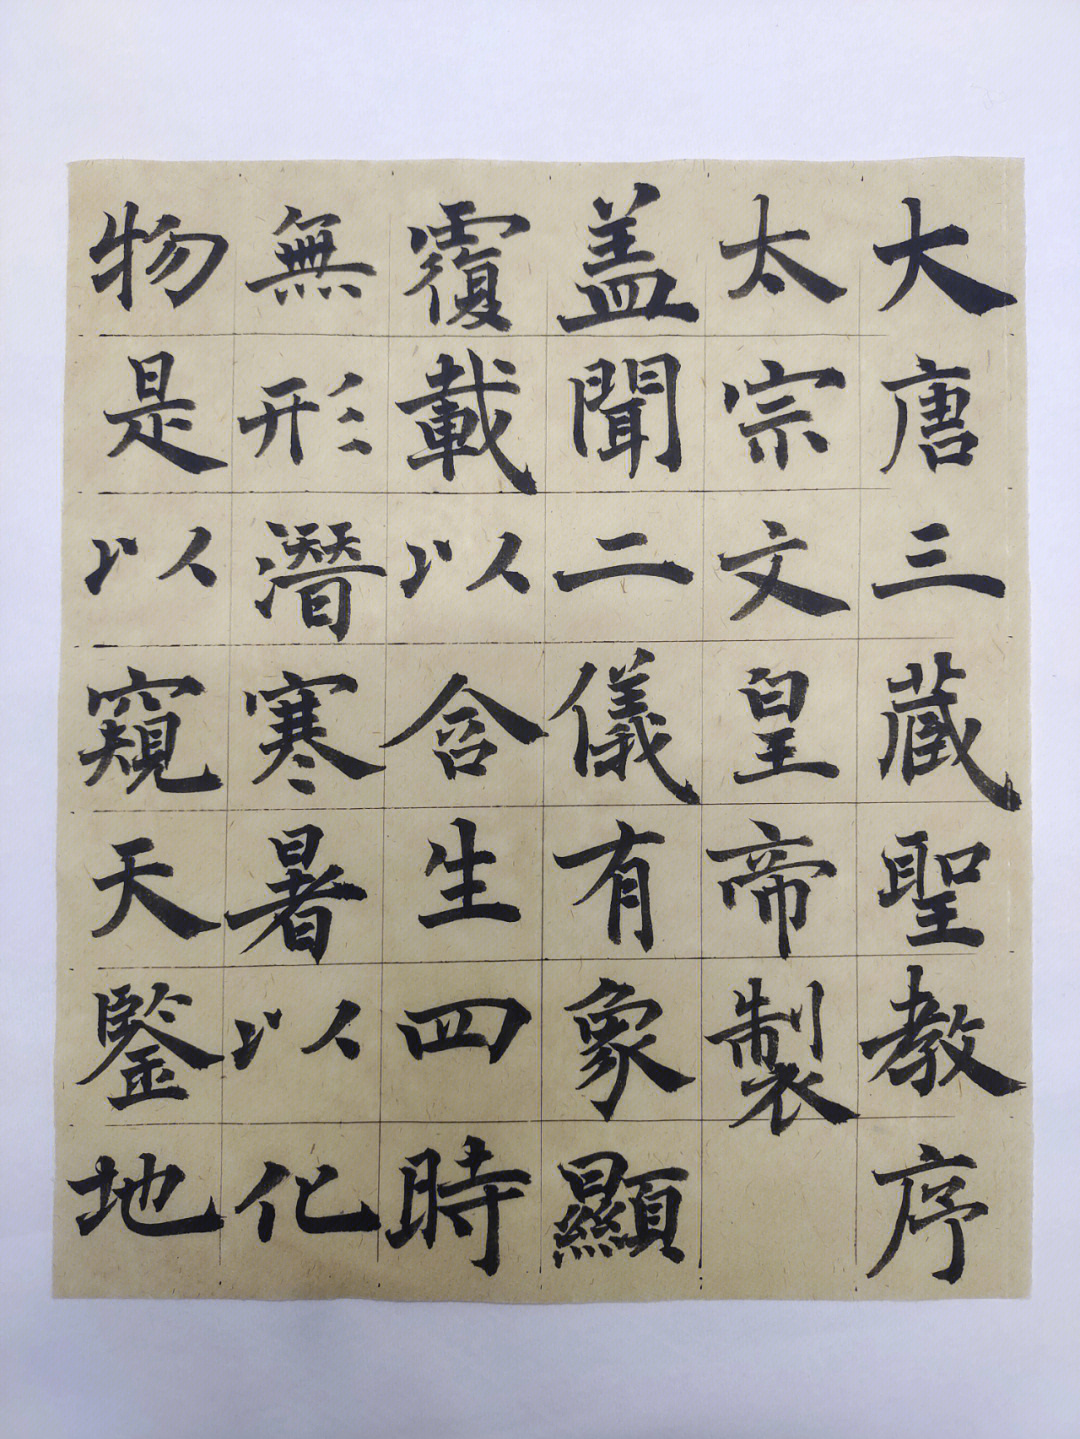 大唐三蔵聖教序
太宗文皇帝製
盖聞二儀有象顯
覆載以含生四時
無形潛寒暑以化
物是以窺天鑒地